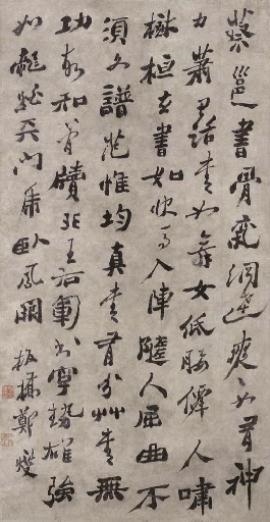 蔡邕書骨氣洞達爽爽有神
力蕭思話書如舞女低腰僊人嘯
樹桓玄書如快馬入陣隨人屈曲不
須文譜范惟均真書有分艸書無
功故知簡牘非王右軍書字勢雄強
如龍跳天門虎臥鳳闕 板橋鄭燮